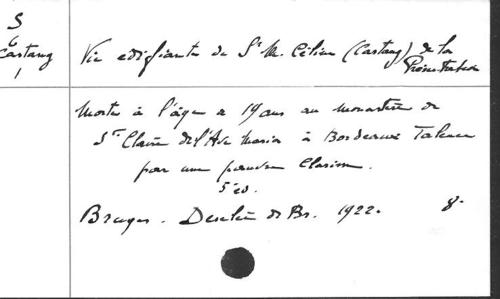 S
6
Castang
1
Vie édifiante de Sr M. Céline (Castang) de la
Présentation
Morte à l'âge de 19 ans au monastère de
Ste Claire de l'Ave Maria à Bordeaux Talence
par une pauvre Clarisse.
5e éd.
Bruges. Desclée de Br. 1922. 8°